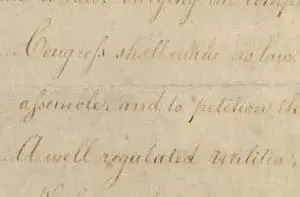 carrying out
...Congreſs shall make no law
aſsemble, and to petition the
...A well regulated militia,